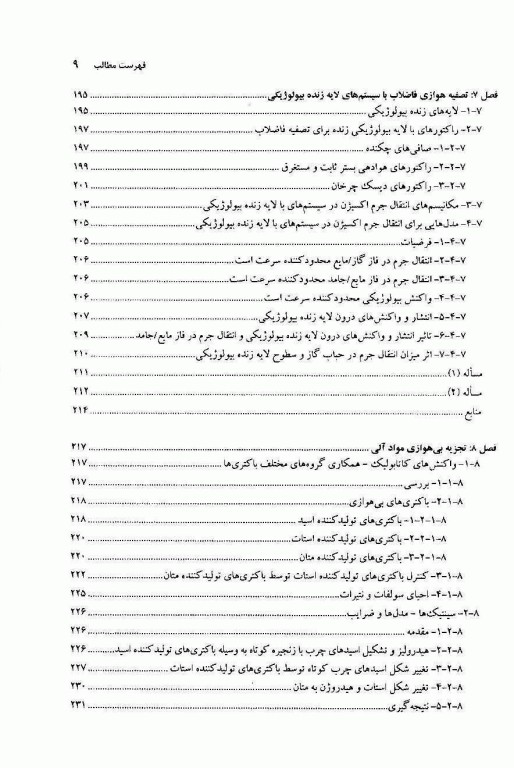 فهرست مطالب ۹
فصل ۷: تصفیه هوازی فاضلاب با سیستم‌های لایه زنده بیولوژیکی ........ ۱۹۵
۷-۱- لایه‌های زنده بیولوژیکی ........ ۱۹۵
۷-۲- راکتورهای با لایه بیولوژیکی زنده برای تصفیه فاضلاب ........ ۱۹۷
۷-۲-۱- صافی‌های چکنده ........ ۱۹۷
۷-۲-۲- راکتورهای هوادهی بستر ثابت و مستغرق ........ ۱۹۹
۷-۲-۳- راکتورهای دیسک چرخان ........ ۲۰۱
۷-۳- مکانیسم‌های انتقال جرم اکسیژن در سیستم‌های با لایه زنده بیولوژیکی ........ ۲۰۳
۷-۴- مدل‌هایی برای انتقال جرم اکسیژن در سیستم‌های با لایه زنده بیولوژیکی ........ ۲۰۵
۷-۴-۱- فرضیات ........ ۲۰۵
۷-۴-۲- انتقال جرم در فاز گاز/مایع محدودکننده سرعت است ........ ۲۰۶
۷-۴-۳- انتقال جرم در فاز مایع/جامد محدودکننده سرعت است ........ ۲۰۶
۷-۴-۴- واکنش بیولوژیکی محدودکننده سرعت است ........ ۲۰۶
۷-۴-۵- انتشار و واکنش‌های درون لایه زنده بیولوژیکی ........ ۲۰۷
۷-۴-۶- تاثیر انتشار و واکنش‌های درون لایه زنده بیولوژیکی و انتقال جرم در فاز مایع/جامد ........ ۲۰۹
۷-۴-۷- اثر میزان انتقال جرم در حباب گاز و سطوح لایه زنده بیولوژیکی ........ ۲۱۰
مسأله (۱) ........ ۲۱۱
مسأله (۲) ........ ۲۱۲
منابع ........ ۲۱۴
فصل ۸: تجزیه بی‌هوازی مواد آلی ........ ۲۱۷
۸-۱- واکنش‌های کاتابولیک - همکاری گروه‌های مختلف باکتری‌ها ........ ۲۱۷
۸-۱-۱- بررسی ........ ۲۱۷
۸-۱-۲- باکتری‌های بی‌هوازی ........ ۲۱۸
۸-۱-۲-۱- باکتری‌های تولیدکننده اسید ........ ۲۱۸
۸-۱-۲-۲- باکتری‌های تولیدکننده استات ........ ۲۲۰
۸-۱-۲-۳- باکتری‌های تولیدکننده متان ........ ۲۲۰
۸-۱-۳- کنترل باکتری‌های تولیدکننده استات توسط باکتری‌های تولیدکننده متان ........ ۲۲۲
۸-۱-۴- احیای سولفات و نیترات ........ ۲۲۵
۸-۲- سینتیک‌ها - مدل‌ها و ضرایب ........ ۲۲۶
۸-۲-۱- مقدمه ........ ۲۲۶
۸-۲-۲- هیدرولیز و تشکیل اسیدهای چرب با زنجیره کوتاه به وسیله باکتری‌های تولیدکننده اسید ........ ۲۲۶
۸-۲-۳- تغییر شکل اسیدهای چرب کوتاه توسط باکتری‌های تولیدکننده استات ........ ۲۲۷
۸-۲-۴- تغییر شکل استات و هیدروژن به متان ........ ۲۳۰
۸-۲-۵- نتیجه‌گیری ........ ۲۳۱